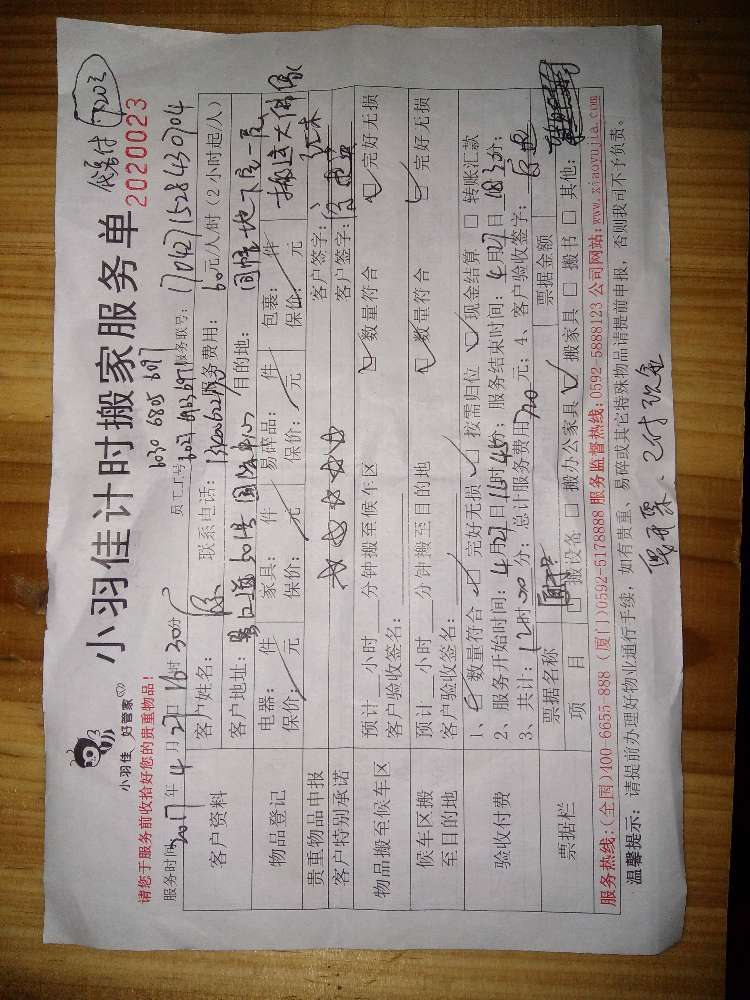 小羽佳 好管家
小羽佳计时搬家服务单
2020023
请您于服务前收拾好您的贵重物品!
6030 6805 6097
服务时间: 2017年4月27日16时30分 员工工号: 服务联号: 1704271528430704
客户资料 客户姓名: 陈 联系电话: 服务费用: 60元/人/时(2小时起/人)
客户地址: 目的地: 地下室一层
物品登记 电器: 件 家具: 件 易碎品: 件 包裹: 件
保价: 元 保价: 元 保价: 元 保价: 元
贵重物品申报 客户签字:
客户特别承诺 客户签字:
物品搬至候车区 预计 小时 分钟搬至候车区 数量符合 完好无损
客户验收签名:
候车区搬至目的地 预计 小时 分钟搬至目的地 数量符合 完好无损
客户验收签名:
验收付费 1、数量符合 完好无损 按需归位 现金结算 转账汇款
2、服务开始时间: 4月27日16时45分; 服务结束时间: 4月27日18时30分;
3、共计: 12时00分; 总计服务费用720元; 4、客户验收签字:
票据栏 票据名称 票据金额
项目 搬设备 搬办公家具 搬家具 搬书 其他:
服务热线:(全国)400-6655-888 (厦门)0592-5178888 服务监督热线:0592-5888123 公司网站:www.xiaoyujia.com
温馨提示: 请提前办理好物业通行手续, 如有贵重、易碎或其它特殊物品请提前申报, 否则我司不予负责。
已付现金